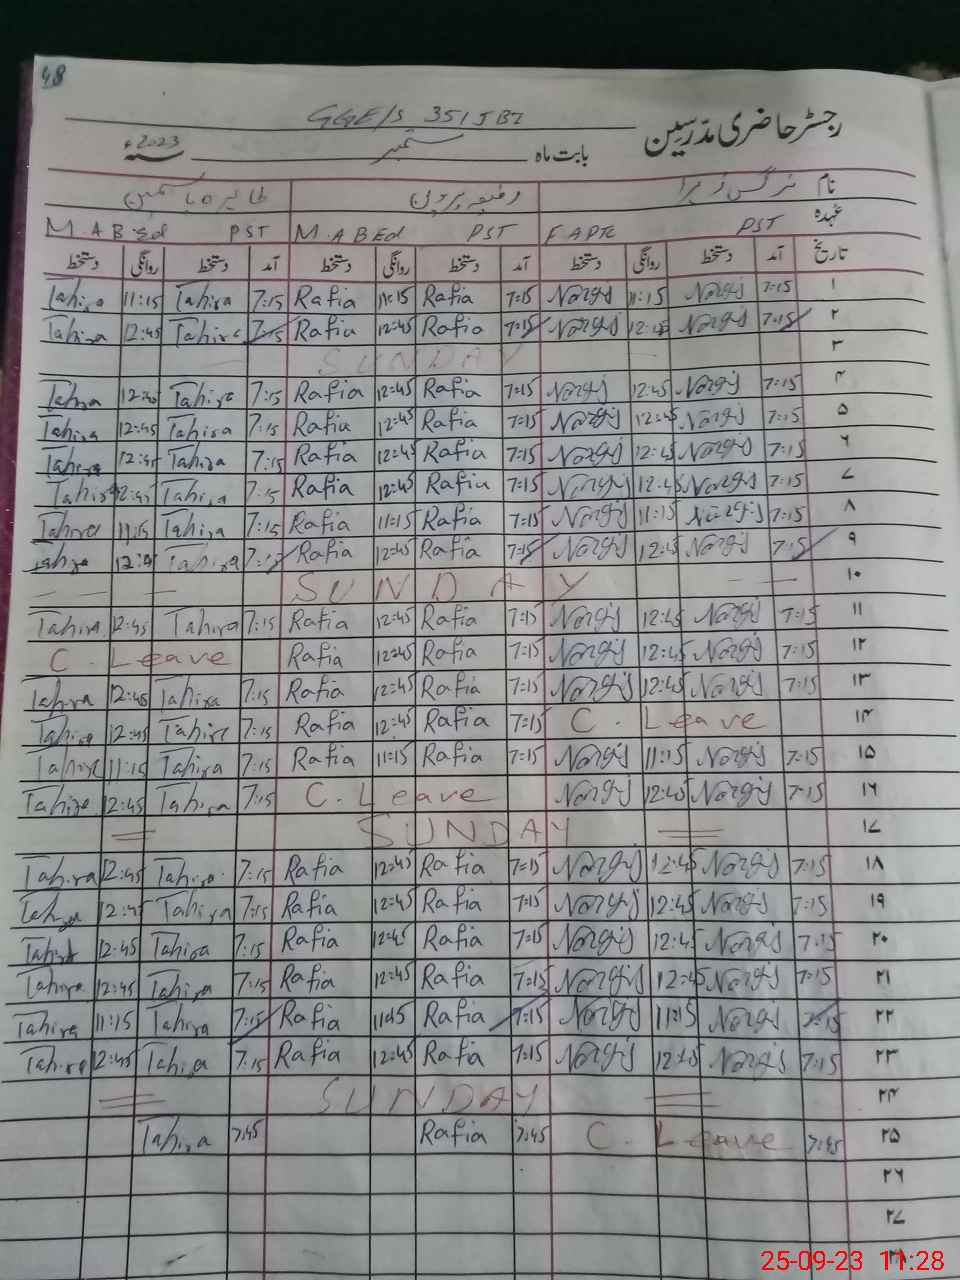 48
رجسٹر حاضری مدرسین GGE/S 351JBZ
بابت ماہ ستمبر سنہ 2023ء
نام نرگس زہرا رفیعہ پروین طاہرہ یاسمین
عہدہ PST F A PTC PST M.A B Ed PST M.A B.Ed
تاریخ آمد دستخط روانگی دستخط آمد دستخط روانگی دستخط آمد دستخط روانگی دستخط
Tahira 11:15 Tahira 7:15 Rafia 11:15 Rafia 7:15 Nargis 11:15 Nargis 7:15 ۱
Tahira 12:45 Tahira 7:15 Rafia 12:45 Rafia 7:15 Nargis 12:45 Nargis 7:15 ۲
SUNDAY ۳
Tahira 12:45 Tahira 7:15 Rafia 12:45 Rafia 7:15 Nargis 12:45 Nargis 7:15 ۴
Tahira 12:45 Tahira 7:15 Rafia 12:45 Rafia 7:15 Nargis 12:45 Nargis 7:15 ۵
Tahira 12:45 Tahira 7:15 Rafia 12:45 Rafia 7:15 Nargis 12:45 Nargis 7:15 ۶
Tahira 12:45 Tahira 7:15 Rafia 12:45 Rafia 7:15 Nargis 12:45 Nargis 7:15 ۷
Tahira 11:15 Tahira 7:15 Rafia 11:15 Rafia 7:15 Nargis 11:15 Nargis 7:15 ۸
Tahira 12:45 Tahira 7:15 Rafia 12:45 Rafia 7:15 Nargis 12:45 Nargis 7:15 ۹
SUNDAY ۱۰
Tahira 12:45 Tahira 7:15 Rafia 12:45 Rafia 7:15 Nargis 12:45 Nargis 7:15 ۱۱
C. Leave Rafia 12:45 Rafia 7:15 Nargis 12:45 Nargis 7:15 ۱۲
Tahira 12:45 Tahira 7:15 Rafia 12:45 Rafia 7:15 Nargis 12:45 Nargis 7:15 ۱۳
Tahira 12:45 Tahira 7:15 Rafia 12:45 Rafia 7:15 C. Leave ۱۴
Tahira 11:15 Tahira 7:15 Rafia 11:15 Rafia 7:15 Nargis 11:15 Nargis 7:15 ۱۵
Tahira 12:45 Tahira 7:15 C. Leave Nargis 12:45 Nargis 7:15 ۱۶
SUNDAY ۱۷
Tahira 12:45 Tahira 7:15 Rafia 12:45 Rafia 7:15 Nargis 12:45 Nargis 7:15 ۱۸
Tahira 12:45 Tahira 7:15 Rafia 12:45 Rafia 7:15 Nargis 12:45 Nargis 7:15 ۱۹
Tahira 12:45 Tahira 7:15 Rafia 12:45 Rafia 7:15 Nargis 12:45 Nargis 7:15 ۲۰
Tahira 12:45 Tahira 7:15 Rafia 12:45 Rafia 7:15 Nargis 12:45 Nargis 7:15 ۲۱
Tahira 11:15 Tahira 7:15 Rafia 11:45 Rafia 7:15 Nargis 11:15 Nargis 7:15 ۲۲
Tahira 12:45 Tahira 7:15 Rafia 12:45 Rafia 7:15 Nargis 12:45 Nargis 7:15 ۲۳
SUNDAY ۲۴
Tahira 7:45 Rafia 7:45 C. Leave 7:45 ۲۵
۲۶
۲۷
۲۸
25-09-23 11:28